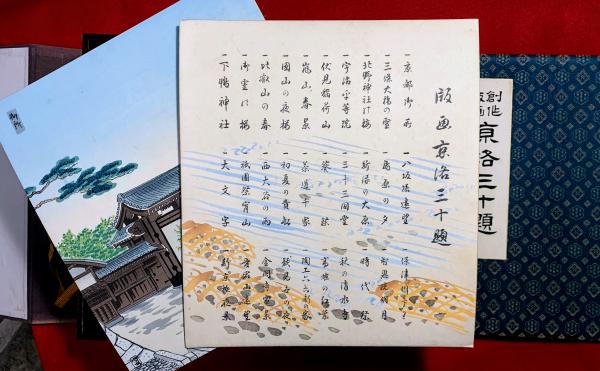 版画京洛三十題
一京都御所
一三條大橋の雪
一北野神社の梅
一宇治平等院
一伏見稲荷山
一嵐山春景
一圓山の夜桜
一比叡山の春
一御室の桜
一下鴨神社
一八坂塔遠望
一島原の夕
一新緑の大原
一三十三間堂
一葵祭
一茶道千家
一初夏の貴船
一西大谷の雨
一祇園祭宵山
一大文字
一保津川下り
一時代祭
一秋の清水寺
一高雄の紅葉
創作版画
京洛三十題
御所